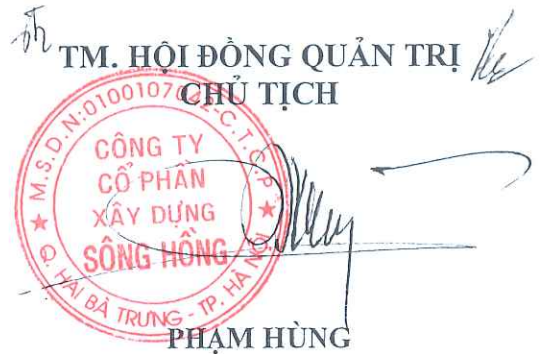 TM. HỘI ĐỒNG QUẢN TRỊ
CHỦ TỊCH
M.S.D.N:0100107042-C.T.C.P
CÔNG TY
CỔ PHẦN
XÂY DỰNG
SÔNG HỒNG
Q. HAI BÀ TRƯNG - TP. HÀ NỘI
PHẠM HÙNG